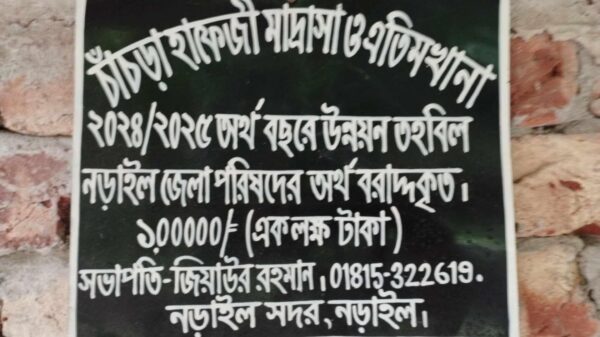 চাঁচড়া হাফেজী মাদ্রাসা ও এতিমখানা
২০২৪/২০২৫ অর্থ বছরে উন্নয়ন তহবিল
নড়াইল জেলা পরিষদের অর্থ বরাদ্দকৃত।
১,০০০০০/= (এক লক্ষ টাকা)
সভাপতি-জিয়াউর রহমান। 01815-322619.
নড়াইল সদর, নড়াইল।